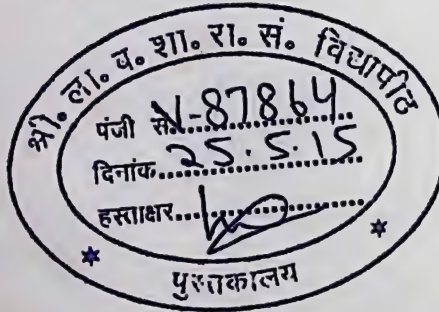 श्री॰ ला॰ व॰ शा॰ रा॰ सं॰ विद्यापीठ
पंजी सं. V-87864
दिनांक 25.5.15
हस्ताक्षर
पुस्तकालय